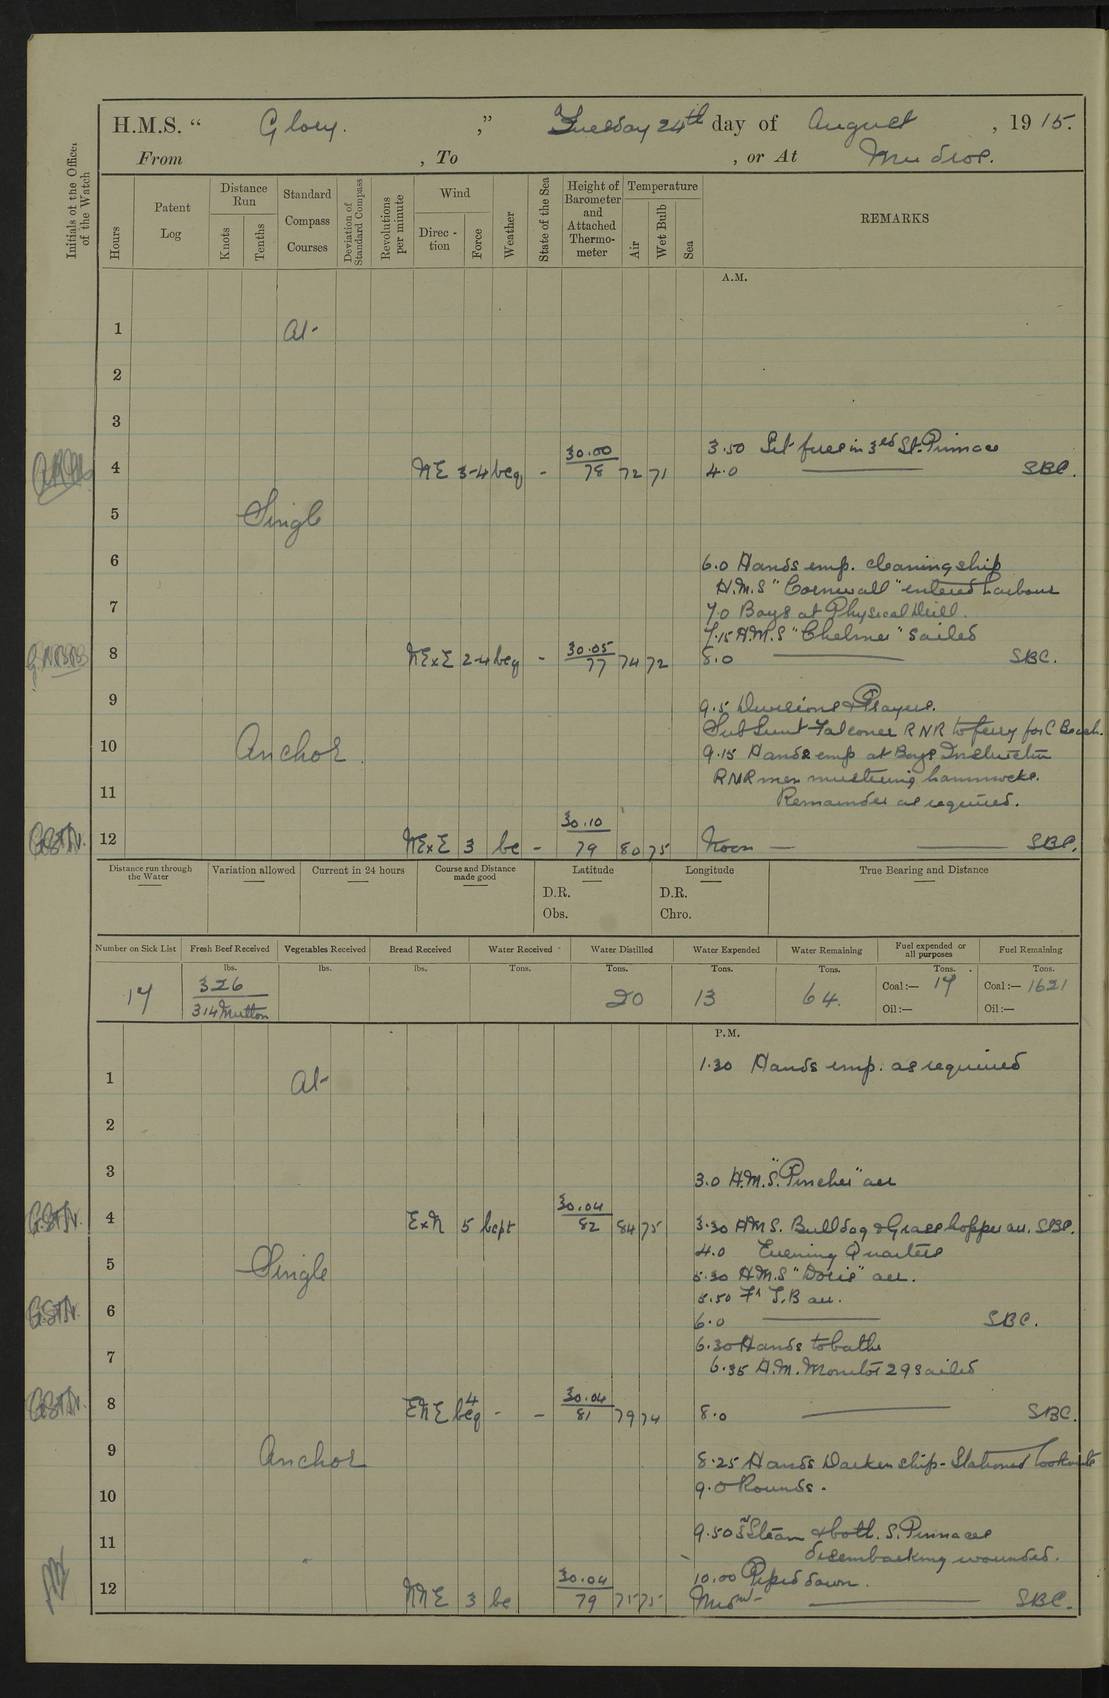 H.M.S. “ Glory. ,” Tuesday 24th day of August , 1915.
From , To , or At Mudros.
Initials of the Officer of the Watch
Hours
Patent Log
Distance Run
Knots
Tenths
Standard Compass Courses
Deviation of Standard Compass
Revolutions per minute
Wind
Direc-tion
Force
Weather
State of the Sea
Height of Barometer and Attached Thermo-meter
Temperature
Air
Wet Bulb
Sea
REMARKS
A.M.
1 At
2
3
3.50 Lit fires in 3rd St. Pinnace
4 NE 3-4 bcq - 30.00 / 78 72 71 4.0 SBC.
5 Single
6 6.0 Hands emp. cleaning ship
H.M.S "Cornwall" entered harbour
7 7.0 Boys at Physical Drill.
7.15 H.M.S "Chelmer" sailed
8 NExE 2-4 bcq - 30.05 / 77 74 72 8.0 SBC.
9 9.5 Divisions & Prayers.
Sub Lieut Falconer RNR to ferry for C Beach.
10 Anchor 9.15 Hands emp at Boys Instruction
RNR men mustering hammocks.
11 Remainder as required.
12 NExE 3 bc - 30.10 / 79 80 75 Noon SBC.
Distance run through the Water
Variation allowed
Current in 24 hours
Course and Distance made good
Latitude
D.R.
Obs.
Longitude
D.R.
Chro.
True Bearing and Distance
Number on Sick List
Fresh Beef Received
Vegetables Received
Bread Received
Water Received
Water Distilled
Water Expended
Water Remaining
Fuel expended or all purposes
Fuel Remaining
lbs. lbs. lbs. Tons. Tons. Tons. Tons. Tons. Tons.
17 326 20 13 64. Coal:— 19 Coal:— 1621
314 Mutton Oil:— Oil:—
P.M.
1 At 1.30 Hands emp. as required
2
3 3.0 H.M.S. "Pincher" arr
4 ExN 5 bcpt 30.04 / 82 84 75 3.30 HMS. Bulldog & Grasshopper arr. SBC.
4.0 Evening Quarters
5 Single 5.30 H.M.S "Doris" arr.
5.50 Fr T.B arr.
6 6.0 SBC.
6.30 Hands to bathe
7 6.35 H.M. Monitor 29 sailed
8 ENE 4 bcq - - 30.04 / 81 79 74 8.0 SBC.
9 Anchor 8.25 Hands Darken ship - Stationed lookouts
10 9.0 Rounds.
11 9.50 & both S. Pinnaces
disembarking wounded.
10.00 Piped down.
12 NNE 3 bc 30.04 / 79 75 75 Midnt SBC.